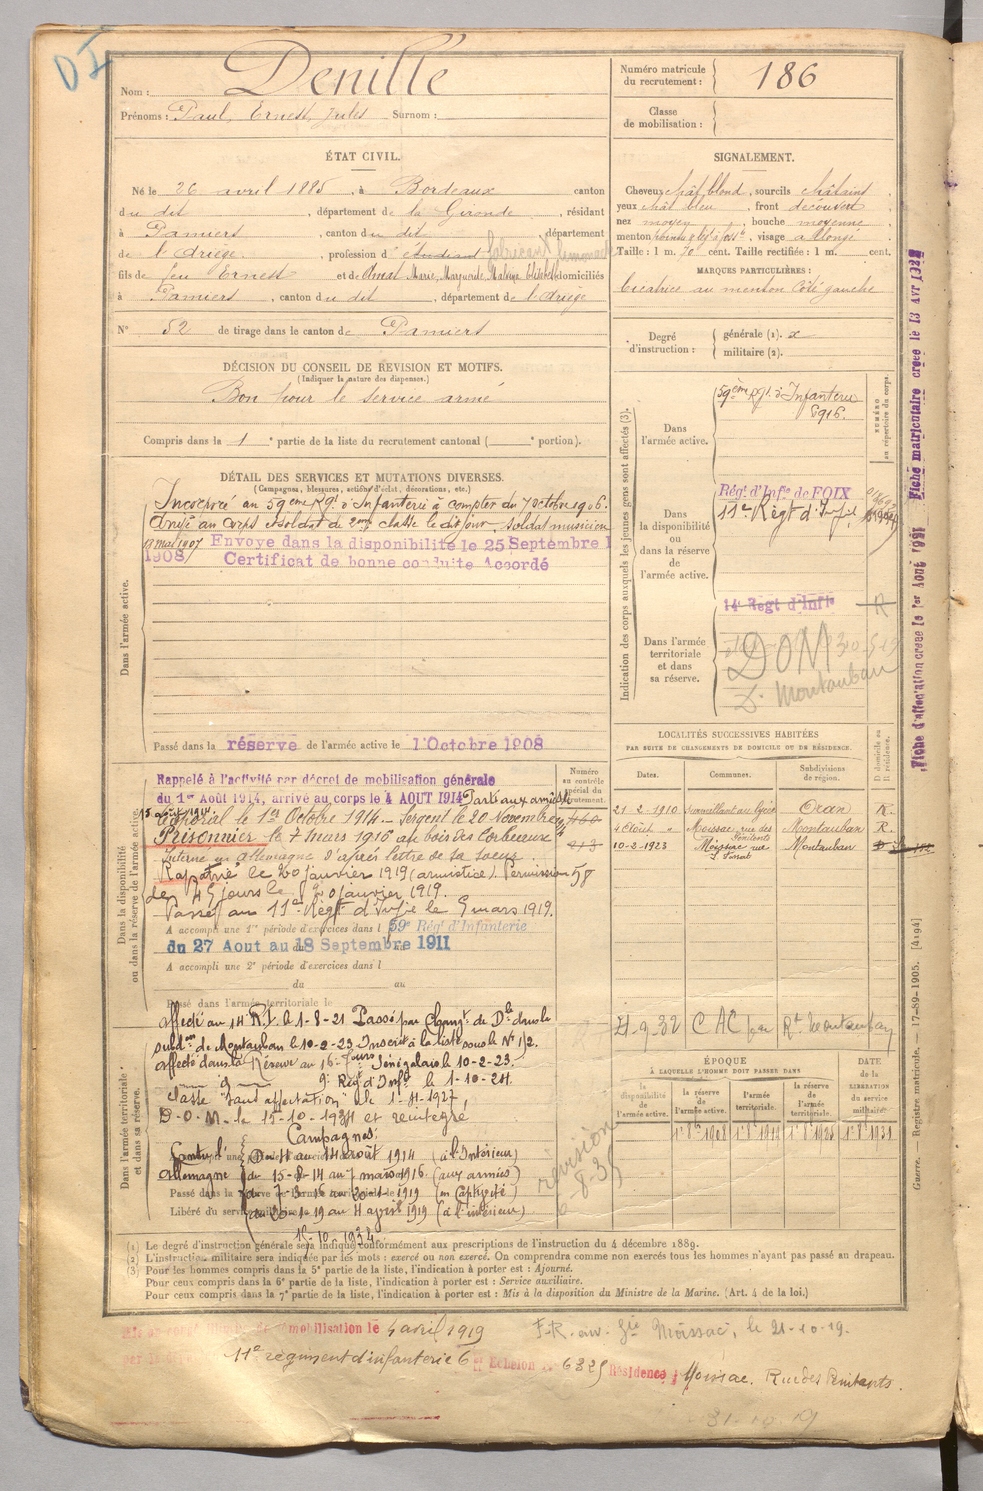 D I
Nom : Denille
Prénoms : Paul, Ernest, Jules Surnom :
Numéro matricule du recrutement : 186
Classe de mobilisation :
ÉTAT CIVIL.
Né le 26 avril 1885, à Bordeaux canton
du dit, département de la Gironde, résidant
à Pamiers, canton du dit département
de l'Ariège, profession d'étudiant fabricant limonade
fils de feu Ernest et de Marie, Marguerite domiciliés
à Pamiers, canton du dit, département de l'Ariège
N° 52 de tirage dans le canton de Pamiers
SIGNALEMENT.
Cheveux chât blond, sourcils châtains
yeux chât bleu, front découvert
nez moyen, bouche moyenne
menton, visage allongé
Taille : 1 m. 70 cent. Taille rectifiée : 1 m. cent.
MARQUES PARTICULIÈRES :
Cicatrice au menton côté gauche
Degré d'instruction : générale (1). x
militaire (2).
DÉCISION DU CONSEIL DE REVISION ET MOTIFS.
(Indiquer la nature des dispenses.)
Bon pour le service armé
Compris dans la 1e partie de la liste du recrutement cantonal ( e portion).
DÉTAIL DES SERVICES ET MUTATIONS DIVERSES.
(Campagnes, blessures, actions d'éclat, décorations, etc.)
Dans l'armée active.
Incorporé au 59ème Rgt d'Infanterie à compter du 7 octobre 1906.
Arrivé au corps et soldat de 2ème classe le dit jour, soldat musicien
13 mai 1907 Envoyé dans la disponibilité le 25 Septembre 1
1908 Certificat de bonne conduite Accordé
Passé dans la réserve de l'armée active le 1 Octobre 1908
Indication des corps auxquels les jeunes gens sont affectés (3).
NUMÉRO au répertoire du corps.
Dans l'armée active.
59ème Rgt d'Infanterie
6916.
Dans la disponibilité ou dans la réserve de l'armée active.
Régt d'Infie de FOIX
11e Régt d'Infie
Dans l'armée territoriale et dans sa réserve.
14e Regt d'Infie R
DOM
D. Montauban
Fiche d'affectation créée le 1er Août 1921 Fiche matriculaire créée le 13 AVR 1922
LOCALITÉS SUCCESSIVES HABITÉES
PAR SUITE DE CHANGEMENTS DE DOMICILE OU DE RÉSIDENCE.
Dates. Communes. Subdivisions de région. D domicile ou R résidence.
21-2-1910 Surveillant au lycée Oran R.
4 Août " Moissac, rue des Pénitents Montauban R.
10-3-1923 Moissac rue Montauban D
21-9-32 CAC Rt Montauban
Dans la disponibilité ou dans la réserve de l'armée active.
Numéro au contrôle spécial du recrutement.
Rappelé à l'activité par décret de mobilisation générale
du 1er Août 1914, arrivé au corps le 4 AOUT 1914 Parti aux armées le
15 août 1914. Caporal le 1er Octobre 1914 - Sergent le 20 Novembre
Prisonnier le 7 mars 1916 au bois des Corbeaux
Interné en Allemagne d'après lettre de sa soeur.
Rapatrié le 20 janvier 1919 (armistice). Permission
de 45 jours le 20 janvier 1919.
Passé au 11e Régt d'Infie le 9 mars 1919.
58
A accompli une 1re période d'exercices dans l 59e Régt d'Infanterie
du 27 Aout au 18 Septembre 1911
A accompli une 2e période d'exercices dans l
du au
Passé dans l'armée territoriale le
Dans l'armée territoriale et dans sa réserve.
Affecté au 14 R.I. le 1-8-21 Passé par Changt de Dle dans la
subdon de Montauban le 10-2-23 Inscrit à la liste sous le N° 1/2.
affecté dans la Réserve au 16e Sénégalais le 10-2-23.
9e Régt d'Infie le 1-10-24.
Classé "Sans affectation" le 1-4-1927
D.O.M. le 15-10-1934 et réintégré
Campagnes:
Contre l'Allemagne
Du 4 au 14 août 1914 (à l'Intérieur)
du 15-8-14 au 7 mars 1916 (aux armées)
du 7-3-16 au 20-1-1919 (en Captivité)
du 20-1-19 au 4 avril 1919 (à l'intérieur)
15-10-1934
Libéré du service
révision
ÉPOQUE
À LAQUELLE L'HOMME DOIT PASSER DANS
DATE DE LA LIBÉRATION du service militaire.
la disponibilité de l'armée active. la réserve de l'armée active. l'armée territoriale. la réserve de l'armée territoriale.
Guerre. — Registre matricule. — 17-89-1905. [4194]
(1) Le degré d'instruction générale sera indiqué conformément aux prescriptions de l'instruction du 4 décembre 1889.
(2) L'instruction militaire sera indiquée par les mots : exercé ou non exercé. On comprendra comme non exercés tous les hommes n'ayant pas passé au drapeau.
(3) Pour les hommes compris dans la 5e partie de la liste, l'indication à porter est : Ajourné.
Pour ceux compris dans la 6e partie de la liste, l'indication à porter est : Service auxiliaire.
Pour ceux compris dans la 7e partie de la liste, l'indication à porter est : Mis à la disposition du Ministre de la Marine. (Art. 4 de la loi.)
mobilisation le 4 avril 1919
F.R. env. Gie Moissac, le 21-10-19.
11e régiment d'infanterie 6e Echelon N° 6325 Résidence, Moissac. Rue des Pénitents.
31-10-19